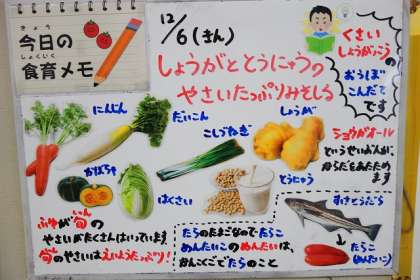 きょう
今日の
しょくいく
食育メモ
12/6(きん)
しょうがととうにゅうの
やさいたっぷりみそしる
くさい
しょうがっこう
の
おうぼ
こんだて
です
にんじん
だいこん
こねぎ
しょうが
ショウガオール
というせいぶんが、
からだをあたため
ます
かぼちゃ
はくさい
とうにゅう
ふゆが旬の
しゅん
やさいがたくさんはいっています。
旬のやさいはえいようたっぷり！
すけとうだら
たらのたまごなのでたらこ
めんたいこのめんたいは、
かんこくごでたらのこと
たらこ
(めんたいこ)